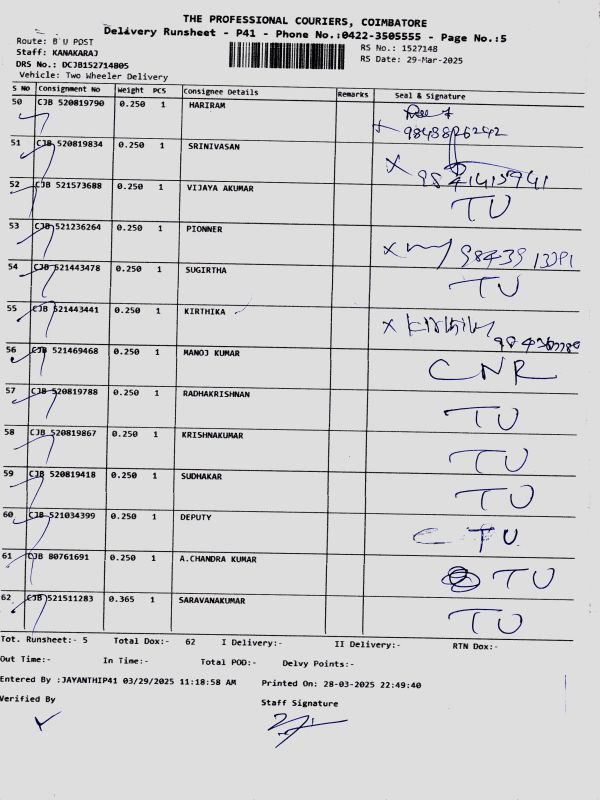 THE PROFESSIONAL COURIERS, COIMBATORE
Delivery Runsheet - P41 - Phone No.:0422-3505555 - Page No.:5
Route: B U POST
RS No.: 1527148
Staff: KANAKARAJ
RS Date: 29-Mar-2025
DRS No.: DCJB152714805
Vehicle: Two Wheeler Delivery
S NO Consignment No Weight PCS Consignee Details Remarks Seal & Signature
50 CJB 520819790 0.250 1 HARIRAM
51 CJB 520819834 0.250 1 SRINIVASAN
52 CJB 521573688 0.250 1 VIJAYA AKUMAR TU
53 CJB 521236264 0.250 1 PIONNER
54 CJB 521443478 0.250 1 SUGIRTHA TU
55 CJB 521443441 0.250 1 KIRTHIKA
56 CJB 521469468 0.250 1 MANOJ KUMAR CNR
57 CJB 520819788 0.250 1 RADHAKRISHNAN TU
58 CJB 520819867 0.250 1 KRISHNAKUMAR TU
59 CJB 520819418 0.250 1 SUDHAKAR TU
60 CJB 521034399 0.250 1 DEPUTY TU
61 CJB 80761691 0.250 1 A.CHANDRA KUMAR TU
62 CJB 521511283 0.365 1 SARAVANAKUMAR TU
Tot. Runsheet:- 5 Total Dox:- 62 I Delivery:- II Delivery:- RTN Dox:-
Out Time:- In Time:- Total POD:- Delvy Points:-
Entered By :JAYANTHIP41 03/29/2025 11:18:58 AM Printed On: 28-03-2025 22:49:40
Verified By Staff Signature